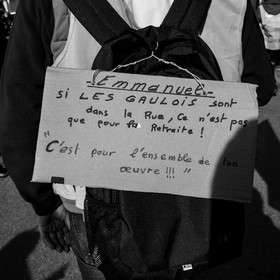 Emmanuel.-
SI LES GAULOIS sont
dans la Rue, Ce n'est pas
que pour la Retraite !
"C'est pour l'ensemble de ton
œuvre !!! "